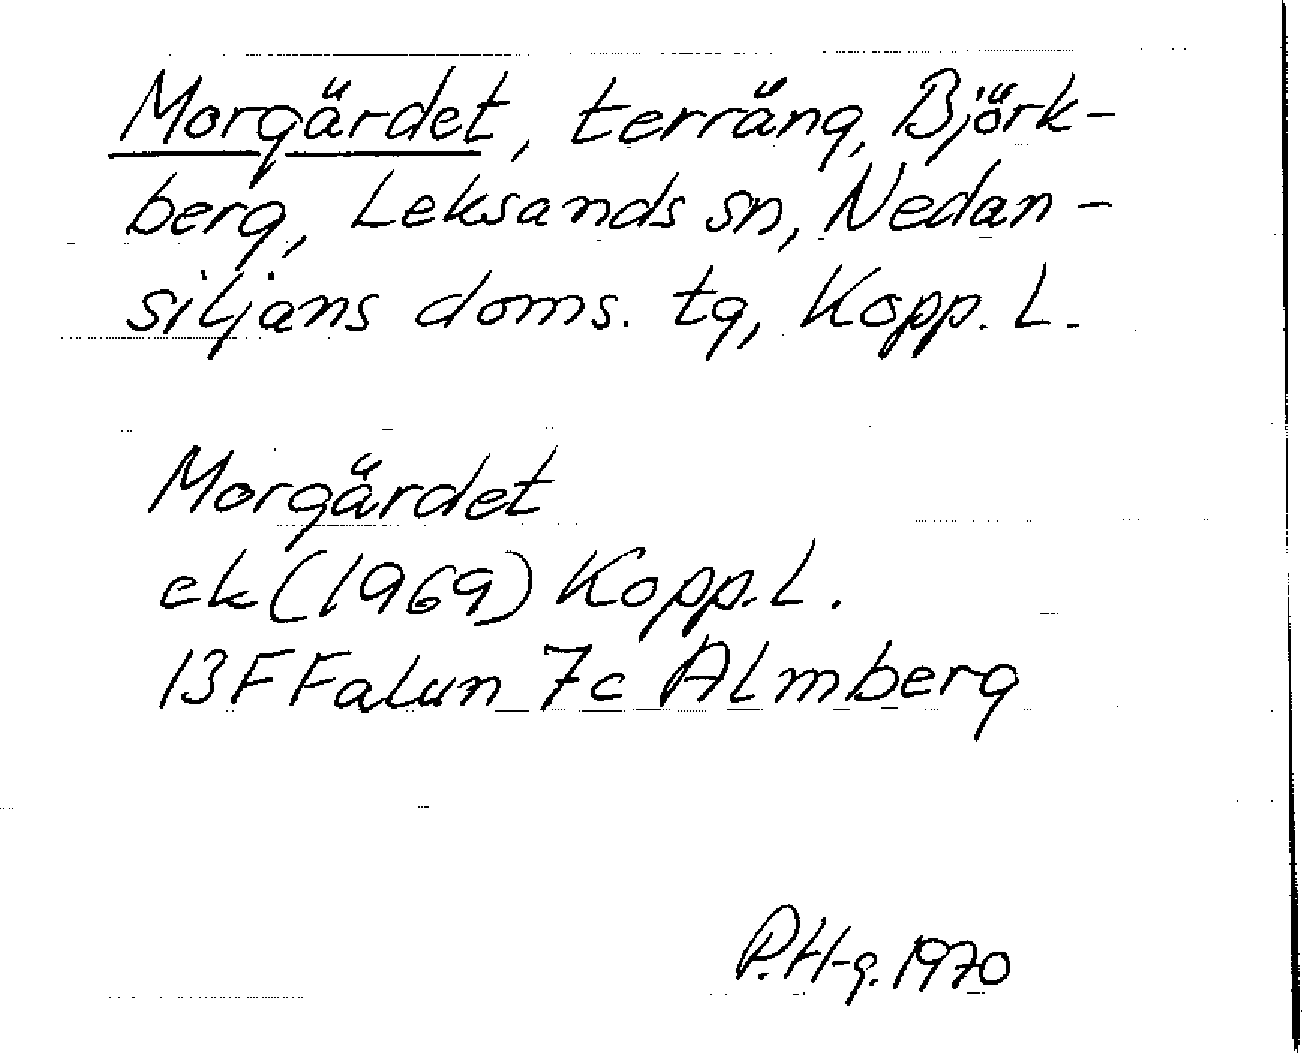 Morgärdet, terräng, Björk-
berg, Leksands sn, Nedan-
siljans doms. tg, Kopp. L.
Morgärdet
ek (1969) Kopp. L.
13F Falun 7c Almberg
P.H-g. 1970